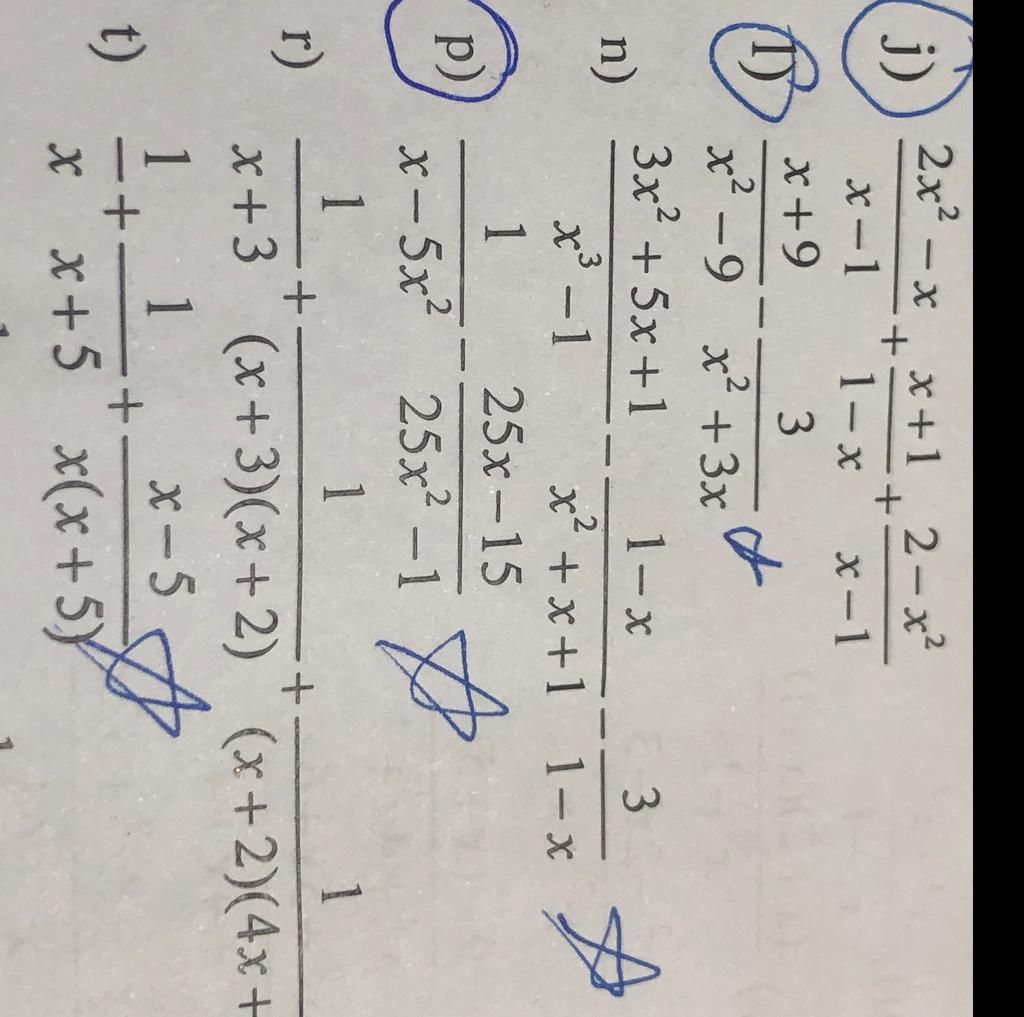 j) \frac{2x^2 - x}{x - 1} + \frac{x + 1}{1 - x} + \frac{2 - x^2}{x - 1}
l) \frac{x + 9}{x^2 - 9} - \frac{3}{x^2 + 3x}
n) \frac{3x^2 + 5x + 1}{x^3 - 1} - \frac{1 - x}{x^2 + x + 1} - \frac{3}{1 - x}
p) \frac{1}{x - 5x^2} - \frac{25x - 15}{25x^2 - 1}
r) \frac{1}{x + 3} + \frac{1}{(x + 3)(x + 2)} + \frac{1}{(x + 2)(4x +}
t) \frac{1}{x} + \frac{1}{x + 5} + \frac{x - 5}{x(x + 5)}